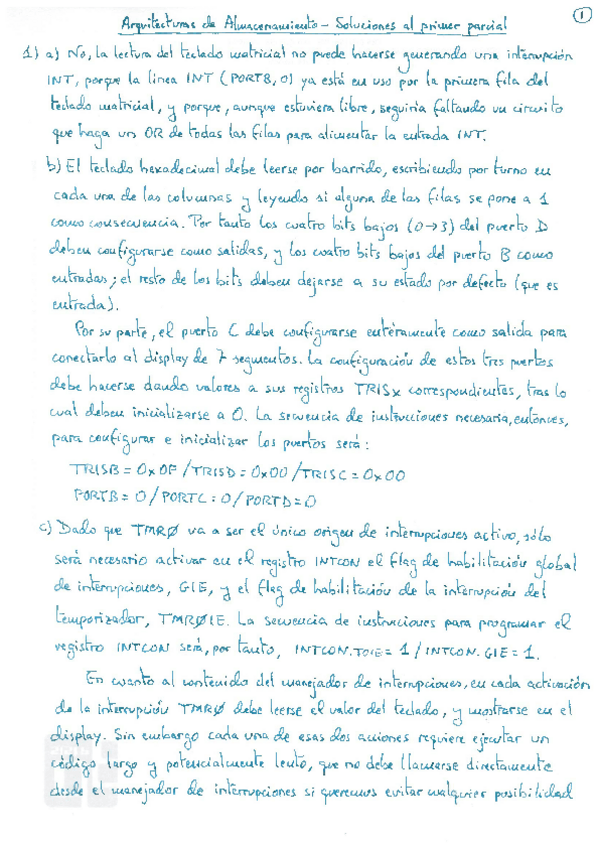 Arquitecturas de Almacenamiento - Soluciones al primer parcial
1
1) a) No, la lectura del teclado matricial no puede hacerse generando una interrupción
INT, porque la línea INT (PORTB,0) ya está en uso por la primera fila del
teclado matricial, y porque, aunque estuviera libre, seguiría faltando un circuito
que haga un OR de todas las filas para alimentar la entrada INT.
b) El teclado hexadecimal debe leerse por barrido, escribiendo por turno en
cada una de las columnas y leyendo si alguna de las filas se pone a 1
como consecuencia. Por tanto los cuatro bits bajos (0→3) del puerto D
deben configurarse como salidas, y los cuatro bits bajos del puerto B como
entradas; el resto de los bits deben dejarse a su estado por defecto (que es
entrada).
Por su parte, el puerto C debe configurarse enteramente como salida para
conectarlo al display de 7 segmentos. La configuración de estos tres puertos
debe hacerse dando valores a sus registros TRISx correspondientes, tras lo
cual deben inicializarse a 0. La secuencia de instrucciones necesaria, entonces,
para configurar e inicializar los puertos será:
TRISB = 0x0F / TRISD = 0x00 / TRISC = 0x00
PORTB = 0 / PORTC = 0 / PORTD = 0
c) Dado que TMRØ va a ser el único origen de interrupciones activo, sólo
será necesario activar en el registro INTCON el flag de habilitación global
de interrupciones, GIE, y el flag de habilitación de la interrupción del
temporizador, TMRØIE. La secuencia de instrucciones para programar el
registro INTCON será, por tanto, INTCON.TOIE = 1 / INTCON.GIE = 1.
En cuanto al contenido del manejador de interrupciones, en cada activación
de la interrupción TMRØ debe leerse el valor del teclado, y mostrarse en el
display. Sin embargo cada una de esas dos acciones requiere ejecutar un
código largo y potencialmente lento, que no debe llamarse directamente
desde el manejador de interrupciones si queremos evitar cualquier posibilidad